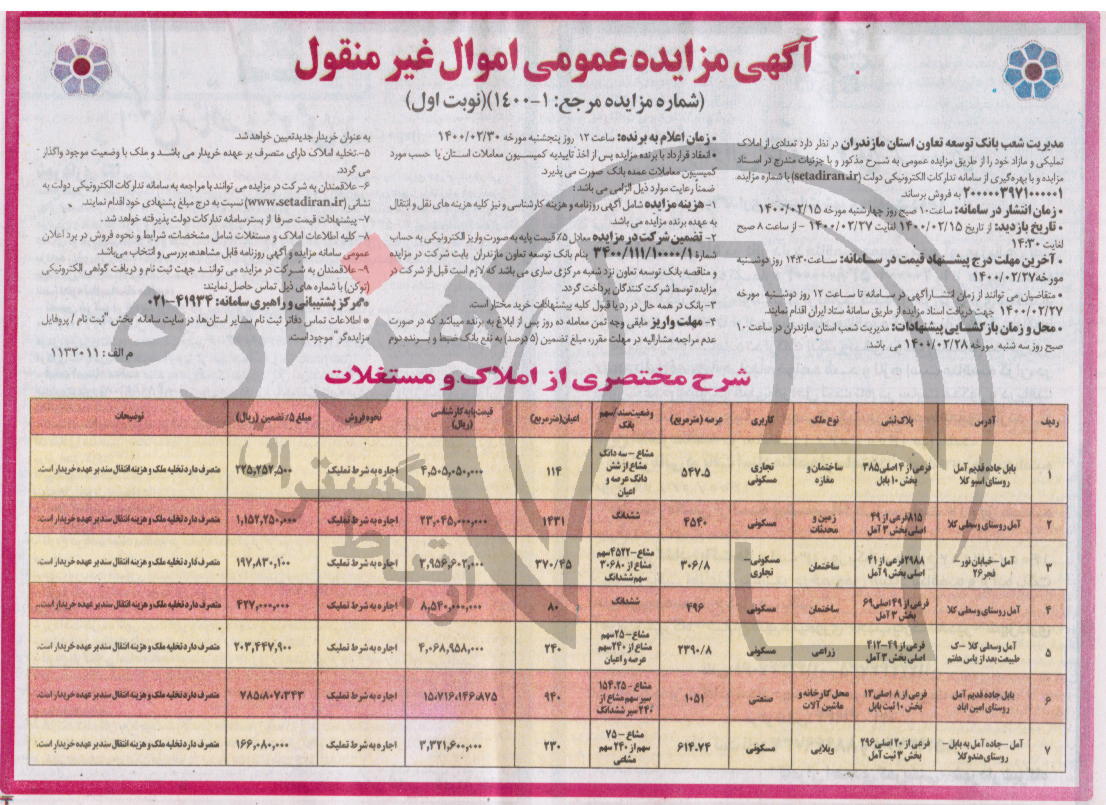 آگهی مزایده عمومی اموال غیر منقول
(شماره مزایده مرجع: ۱-۱۴۰۰)(نوبت اول)
مدیریت شعب بانک توسعه تعاون استان مازندران در نظر دارد تعدادی از املاک
تملیکی و مازاد خود را از طریق مزایده عمومی به شرح مذکور و با جزئیات مندرج در اسناد
مزایده و با بهره‌گیری از سامانه تدارکات الکترونیکی دولت (setadiran.ir) با شماره مزایده
۲۰۰۰۰۰۳۹۷۱۰۰۰۰۰۱ به فروش برساند.
• زمان انتشار در سامانه: ساعت ۱۰ صبح روز چهارشنبه مورخه ۱۴۰۰/۰۲/۱۵
• تاریخ بازدید: از تاریخ ۱۴۰۰/۰۲/۱۵ لغایت ۱۴۰۰/۰۲/۲۷ - از ساعت ۸ صبح
لغایت ۱۴:۳۰
• آخرین مهلت درج پیشنهاد قیمت در سامانه: ساعت ۱۴:۳۰ روز دوشنبه
مورخه ۱۴۰۰/۰۲/۲۷
• متقاضیان می توانند از زمان انتشار آگهی در سامانه تا ساعت ۱۲ روز دوشنبه مورخه
۱۴۰۰/۰۲/۲۷ جهت دریافت اسناد مزایده از طریق سامانهٔ ستاد ایران اقدام نمایند.
• محل و زمان بازگشایی پیشنهادات: مدیریت شعب استان مازندران در ساعت ۱۰
صبح روز سه شنبه مورخه ۱۴۰۰/۰۲/۲۸ می باشد.
• زمان اعلام به برنده: ساعت ۱۲ روز پنجشنبه مورخه ۱۴۰۰/۰۲/۳۰
• انعقاد قرارداد با برنده مزایده پس از اخذ تاییدیه کمیسیون معاملات استان یا حسب مورد
کمیسیون معاملات عمده بانک صورت می پذیرد.
ضمناً رعایت موارد ذیل الزامی می باشد:
۱- هزینه مزایده شامل آگهی روزنامه و هزینه کارشناسی و نیز کلیه هزینه های نقل و انتقال
به عهده برنده مزایده می باشد.
۲- تضمین شرکت در مزایده معادل ۵٪ قیمت پایه به صورت واریز الکترونیکی به حساب
شماره ۳۴۰۰/۱۱۱/۱۰۰۰۰/۱ بنام بانک توسعه تعاون مازندران بابت شرکت در مزایده
و مناقصه بانک توسعه تعاون نزد شعبه مرکزی ساری می باشد که لازم است قبل از شرکت در
مزایده توسط شرکت کنندگان پرداخت گردد.
۳- بانک در همه حال در رد یا قبول کلیه پیشنهادات خرید مختار است.
۴- مهلت واریز مابقی وجه ثمن معامله ده روز پس از ابلاغ به برنده میباشد که در صورت
عدم مراجعه مشارالیه در مهلت مقرر، مبلغ تضمین (۵ درصد) به نفع بانک ضبط و برنده دوم
به عنوان خریدار جدید تعیین خواهد شد.
۵- تخلیه املاک دارای متصرف بر عهده خریدار می باشد و ملک با وضعیت موجود واگذار
می گردد.
۶- علاقمندان به شرکت در مزایده می توانند با مراجعه به سامانه تدارکات الکترونیکی دولت به
نشانی (www.setadiran.ir) نسبت به درج مبلغ پیشنهادی خود اقدام نمایند.
۷- پیشنهادات قیمت صرفا از بستر سامانه تدارکات دولت پذیرفته خواهد شد.
۸- کلیه اطلاعات املاک و مستغلات شامل مشخصات، شرایط و نحوه فروش در برد اعلان
عمومی سامانه مزایده و آگهی روزنامه قابل مشاهده، بررسی و انتخاب می باشد.
۹- علاقمندان به شرکت در مزایده می توانند جهت ثبت نام و دریافت گواهی الکترونیکی
(توکن) با شماره های ذیل تماس حاصل نمایند:
• مرکز پشتیبانی و راهبری سامانه: ۴۱۹۳۴-۰۲۱
• اطلاعات تماس دفاتر ثبت نام سایر استان‌ها، در سایت سامانه بخش "ثبت نام / پروفایل
مزایده‌گر" موجود است.
م الف: ۱۱۳۲۰۱۱
شرح مختصری از املاک و مستغلات
ردیف آدرس پلاک ثبتی نوع ملک کاربری عرصه (مترمربع) وضعیت سند/سهم بانک اعیان (مترمربع) قیمت پایه کارشناسی (ریال) نحوه فروش مبلغ ۵٪ تضمین (ریال) توضیحات
۱ بابل جاده قدیم آمل روستای اسبو کلا فرعی از ۴ اصلی ۳۸۵ بخش ۱۰ بابل ساختمان و مغازه تجاری مسکونی ۵۴۷.۵ مشاع - سه دانگ مشاع از شش دانگ عرصه و اعیان ۱۱۴ ۴,۵۰۵,۰۵۰,۰۰۰ اجاره به شرط تملیک ۲۲۵,۲۵۲,۵۰۰ متصرف دارد تخلیه ملک و هزینه انتقال سند بر عهده خریدار است.
۲ آمل روستای وسطی کلا ۸۱۵ فرعی از ۴۹ اصلی بخش ۳ آمل زمین و محدثات مسکونی ۴۵۴۰ ششدانگ ۱۴۳۱ ۲۳,۰۴۵,۰۰۰,۰۰۰ اجاره به شرط تملیک ۱,۱۵۲,۲۵۰,۰۰۰ متصرف دارد تخلیه ملک و هزینه انتقال سند بر عهده خریدار است.
۳ آمل - خیابان نور - فجر ۲۶ ۲۹۸۸ فرعی از ۴۱ اصلی بخش ۹ آمل ساختمان مسکونی - تجاری ۳۰۶/۸ مشاع - ۴۵۲۲ سهم مشاع از ۳۰۶۸۰ سهم ششدانگ ۳۷۰/۴۵ ۳,۹۵۶,۶۰۲,۰۰۰ اجاره به شرط تملیک ۱۹۷,۸۳۰,۱۰۰ متصرف دارد تخلیه ملک و هزینه انتقال سند بر عهده خریدار است.
۴ آمل روستای وسطی کلا فرعی از ۴۹ اصلی ۶۹ بخش ۳ آمل ساختمان مسکونی ۴۹۶ ششدانگ ۸۰ ۸,۵۴۰,۰۰۰,۰۰۰ اجاره به شرط تملیک ۴۲۷,۰۰۰,۰۰۰ متصرف دارد تخلیه ملک و هزینه انتقال سند بر عهده خریدار است.
۵ آمل وسطی کلا - ک طبیعت بعد از یاس هفتم فرعی از ۴۹-۴۱۲ اصلی بخش ۳ آمل زراعی مسکونی ۲۳۹۰/۸ مشاع - ۲۵ سهم مشاع از ۲۴۰ سهم عرصه و اعیان ۲۴۰ ۴,۰۶۸,۹۵۸,۰۰۰ اجاره به شرط تملیک ۲۰۳,۴۴۷,۹۰۰ متصرف دارد تخلیه ملک و هزینه انتقال سند بر عهده خریدار است.
۶ بابل جاده قدیم آمل روستای امین اباد فرعی از ۸ اصلی ۱۲ بخش ۱۰ ثبت بابل محل کارخانه و ماشین آلات صنعتی ۱۰۵۱ مشاع - ۱۵۴.۲۵ سیر سهم مشاع از ۲۴۰ سیر ششدانگ ۹۴۰ ۱۵,۷۱۶,۱۴۶,۸۷۵ اجاره به شرط تملیک ۷۸۵,۸۰۷,۳۴۳ متصرف دارد تخلیه ملک و هزینه انتقال سند بر عهده خریدار است.
۷ آمل - جاده آمل به بابل - روستای هندو کلا فرعی از ۲۰ اصلی ۲۹۶ بخش ۳ ثبت آمل ویلایی مسکونی ۶۱۴.۷۴ مشاع - ۷۵ سهم از ۲۴۰ سهم مشاعی ۲۳۰ ۳,۳۲۱,۶۰۰,۰۰۰ اجاره به شرط تملیک ۱۶۶,۰۸۰,۰۰۰ متصرف دارد تخلیه ملک و هزینه انتقال سند بر عهده خریدار است.
هزاره
گسترش
ارتباط